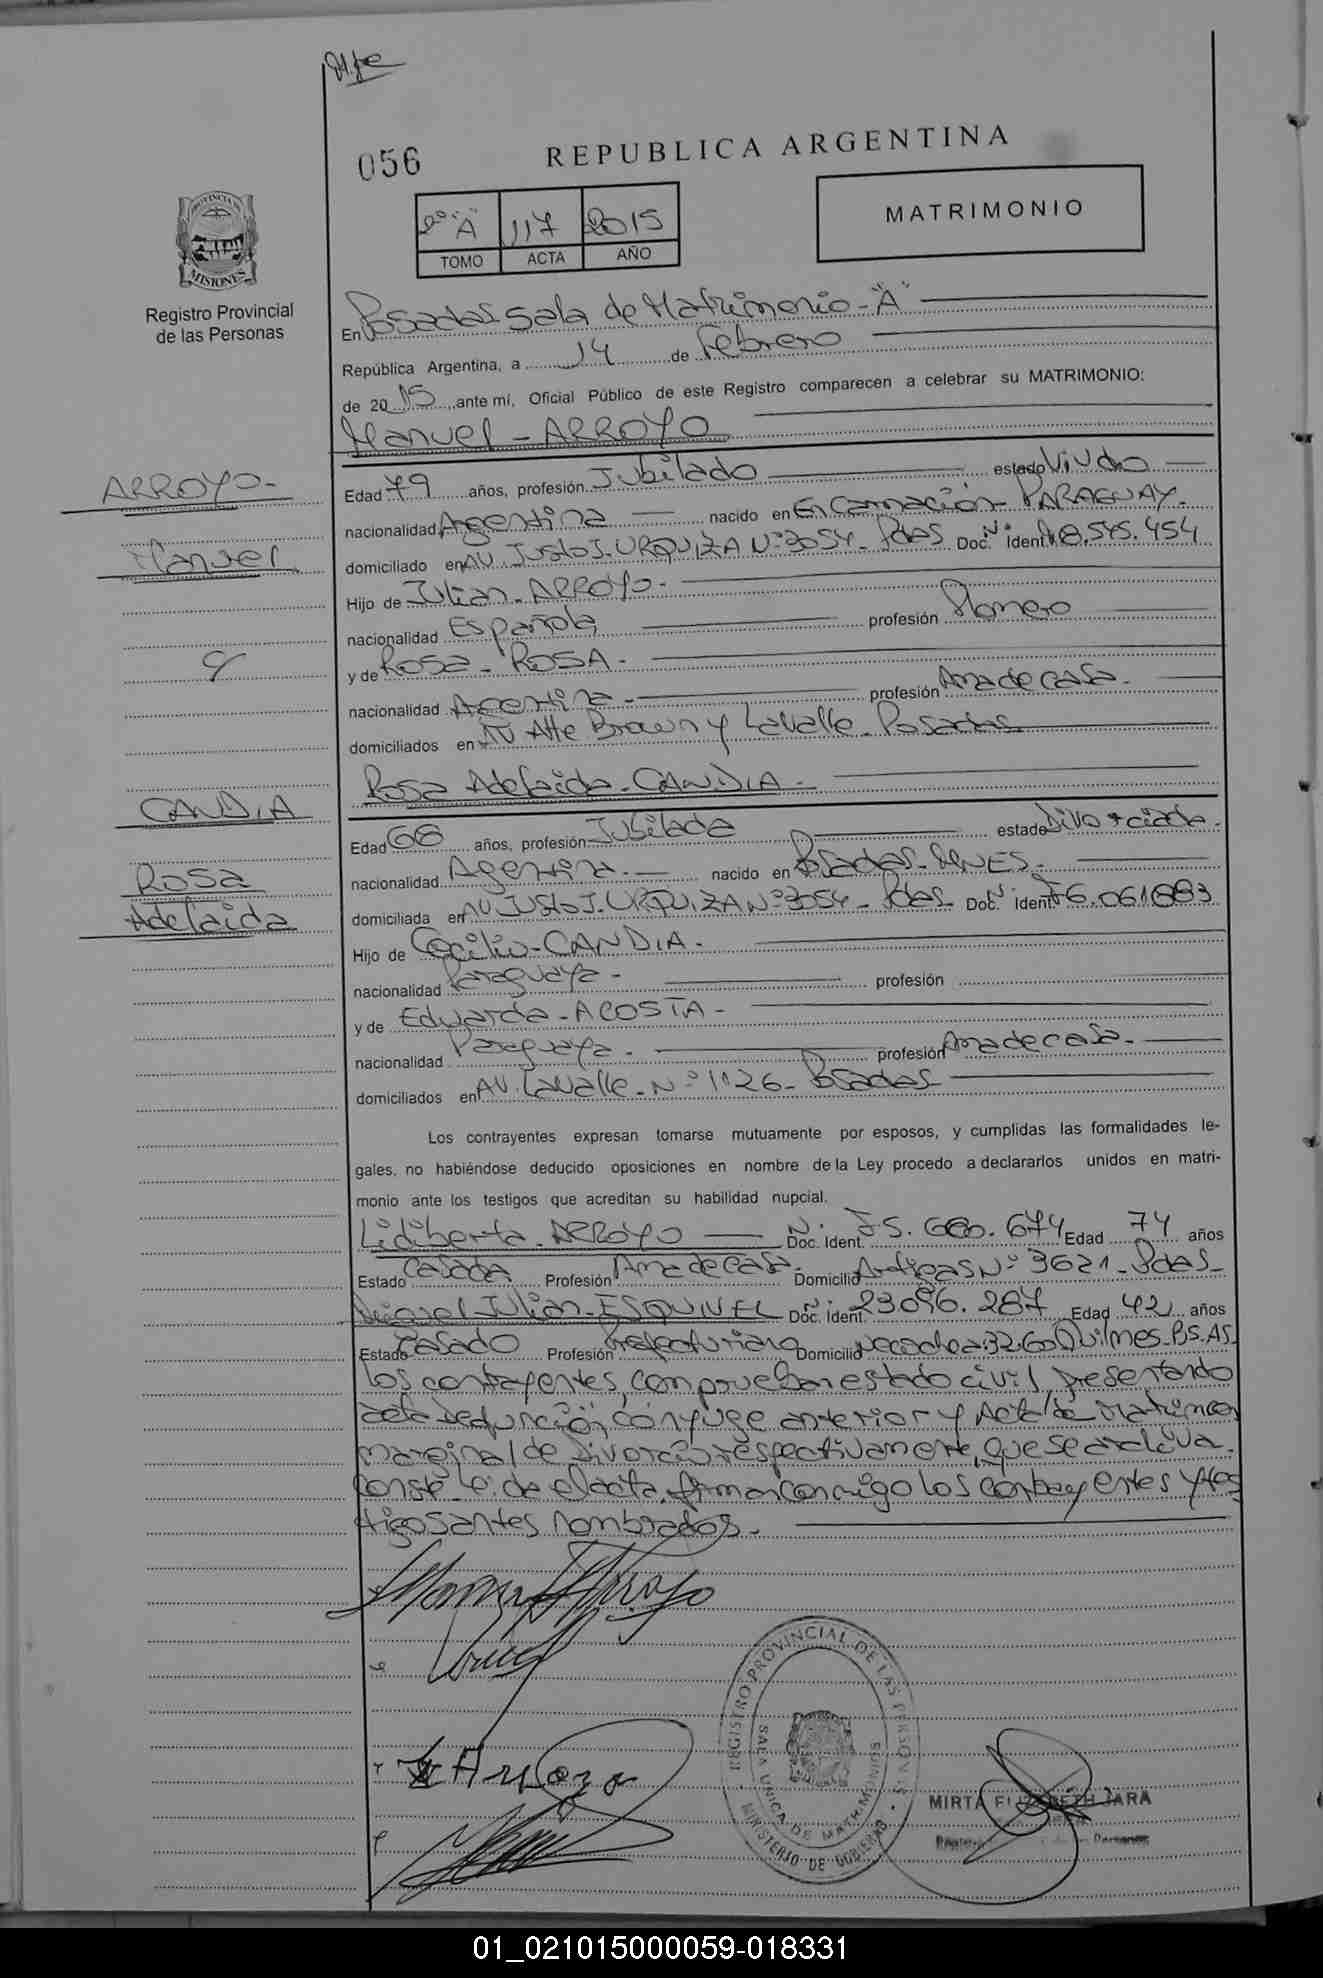 056
REPUBLICA ARGENTINA
2º "A" 117 2015
TOMO ACTA AÑO
MATRIMONIO
PROVINCIA DE
MISIONES
Registro Provincial
de las Personas
En Posadas Sala de Matrimonio - "A"
República Argentina, a 14 de Febrero
de 2015, ante mí, Oficial Público de este Registro comparecen a celebrar su MATRIMONIO:
Manuel - ARROYO
ARROYO -
Manuel
Edad 79 años, profesión Jubilado estado Viudo
nacionalidad Argentina nacido en Encarnación - PARAGUAY.
domiciliado en AV. Justo J. URQUIZA Nº 3054 - Pdas Doc. Ident. Nº 18.545.454
Hijo de Julian - ARROYO -
nacionalidad Española profesión Plomero
y de Rosa - ROSA -
nacionalidad Argentina - profesión Ama de casa -
domiciliados en AV Alte Brown y Lavalle - Posadas
Rosa Adelaida - CANDIA -
CANDIA
Rosa
Adelaida
Edad 68 años, profesión Jubilada estado Divorciada -
nacionalidad Argentina - nacido en Posadas - MNES -
domiciliada en AV JUSTO J. URQUIZA Nº 3054 - Pdas - Doc. Ident. Nº F6.061.883
Hijo de Cecilio - CANDIA -
nacionalidad Paraguaya - profesión
y de Eduarda - ACOSTA -
nacionalidad Paraguaya - profesión Ama de casa -
domiciliados en AV. Lavalle - Nº 1126 - Posadas
Los contrayentes expresan tomarse mutuamente por esposos, y cumplidas las formalidades le-
gales, no habiéndose deducido oposiciones en nombre de la Ley procedo a declararlos unidos en matri-
monio ante los testigos que acreditan su habilidad nupcial.
Lidiberta - ARROYO Doc. Ident. Nº F5. 674 Edad 74 años
Estado Casada Profesión Ama de casa - Domicilio Artigas Nº 3621 - Pdas -
Miguel Julian - ESQUIVEL Doc. Ident. Nº 23.096.287 Edad 42 años
Estado Casado Profesión Prefecturiano Domicilio Necochea 3260 Quilmes - BS. AS.
los contrayentes, comprueban estado civil, presentando
acta defunción, cónyuge anterior y Acta de Matrimonio
marginal de Divorcio respectivamente, que se archiva.
el acta, firman conmigo los contrayentes y tes
tigos antes nombrados -
Manuel Arroyo
L Arroyo
REGISTRO PROVINCIAL DE LAS PERSONAS
SALA UNICA DE MATRIMONIOS
MINISTERIO DE GOBIERNO
MIRTA ELIZABETH JARA
01_021015000059-018331